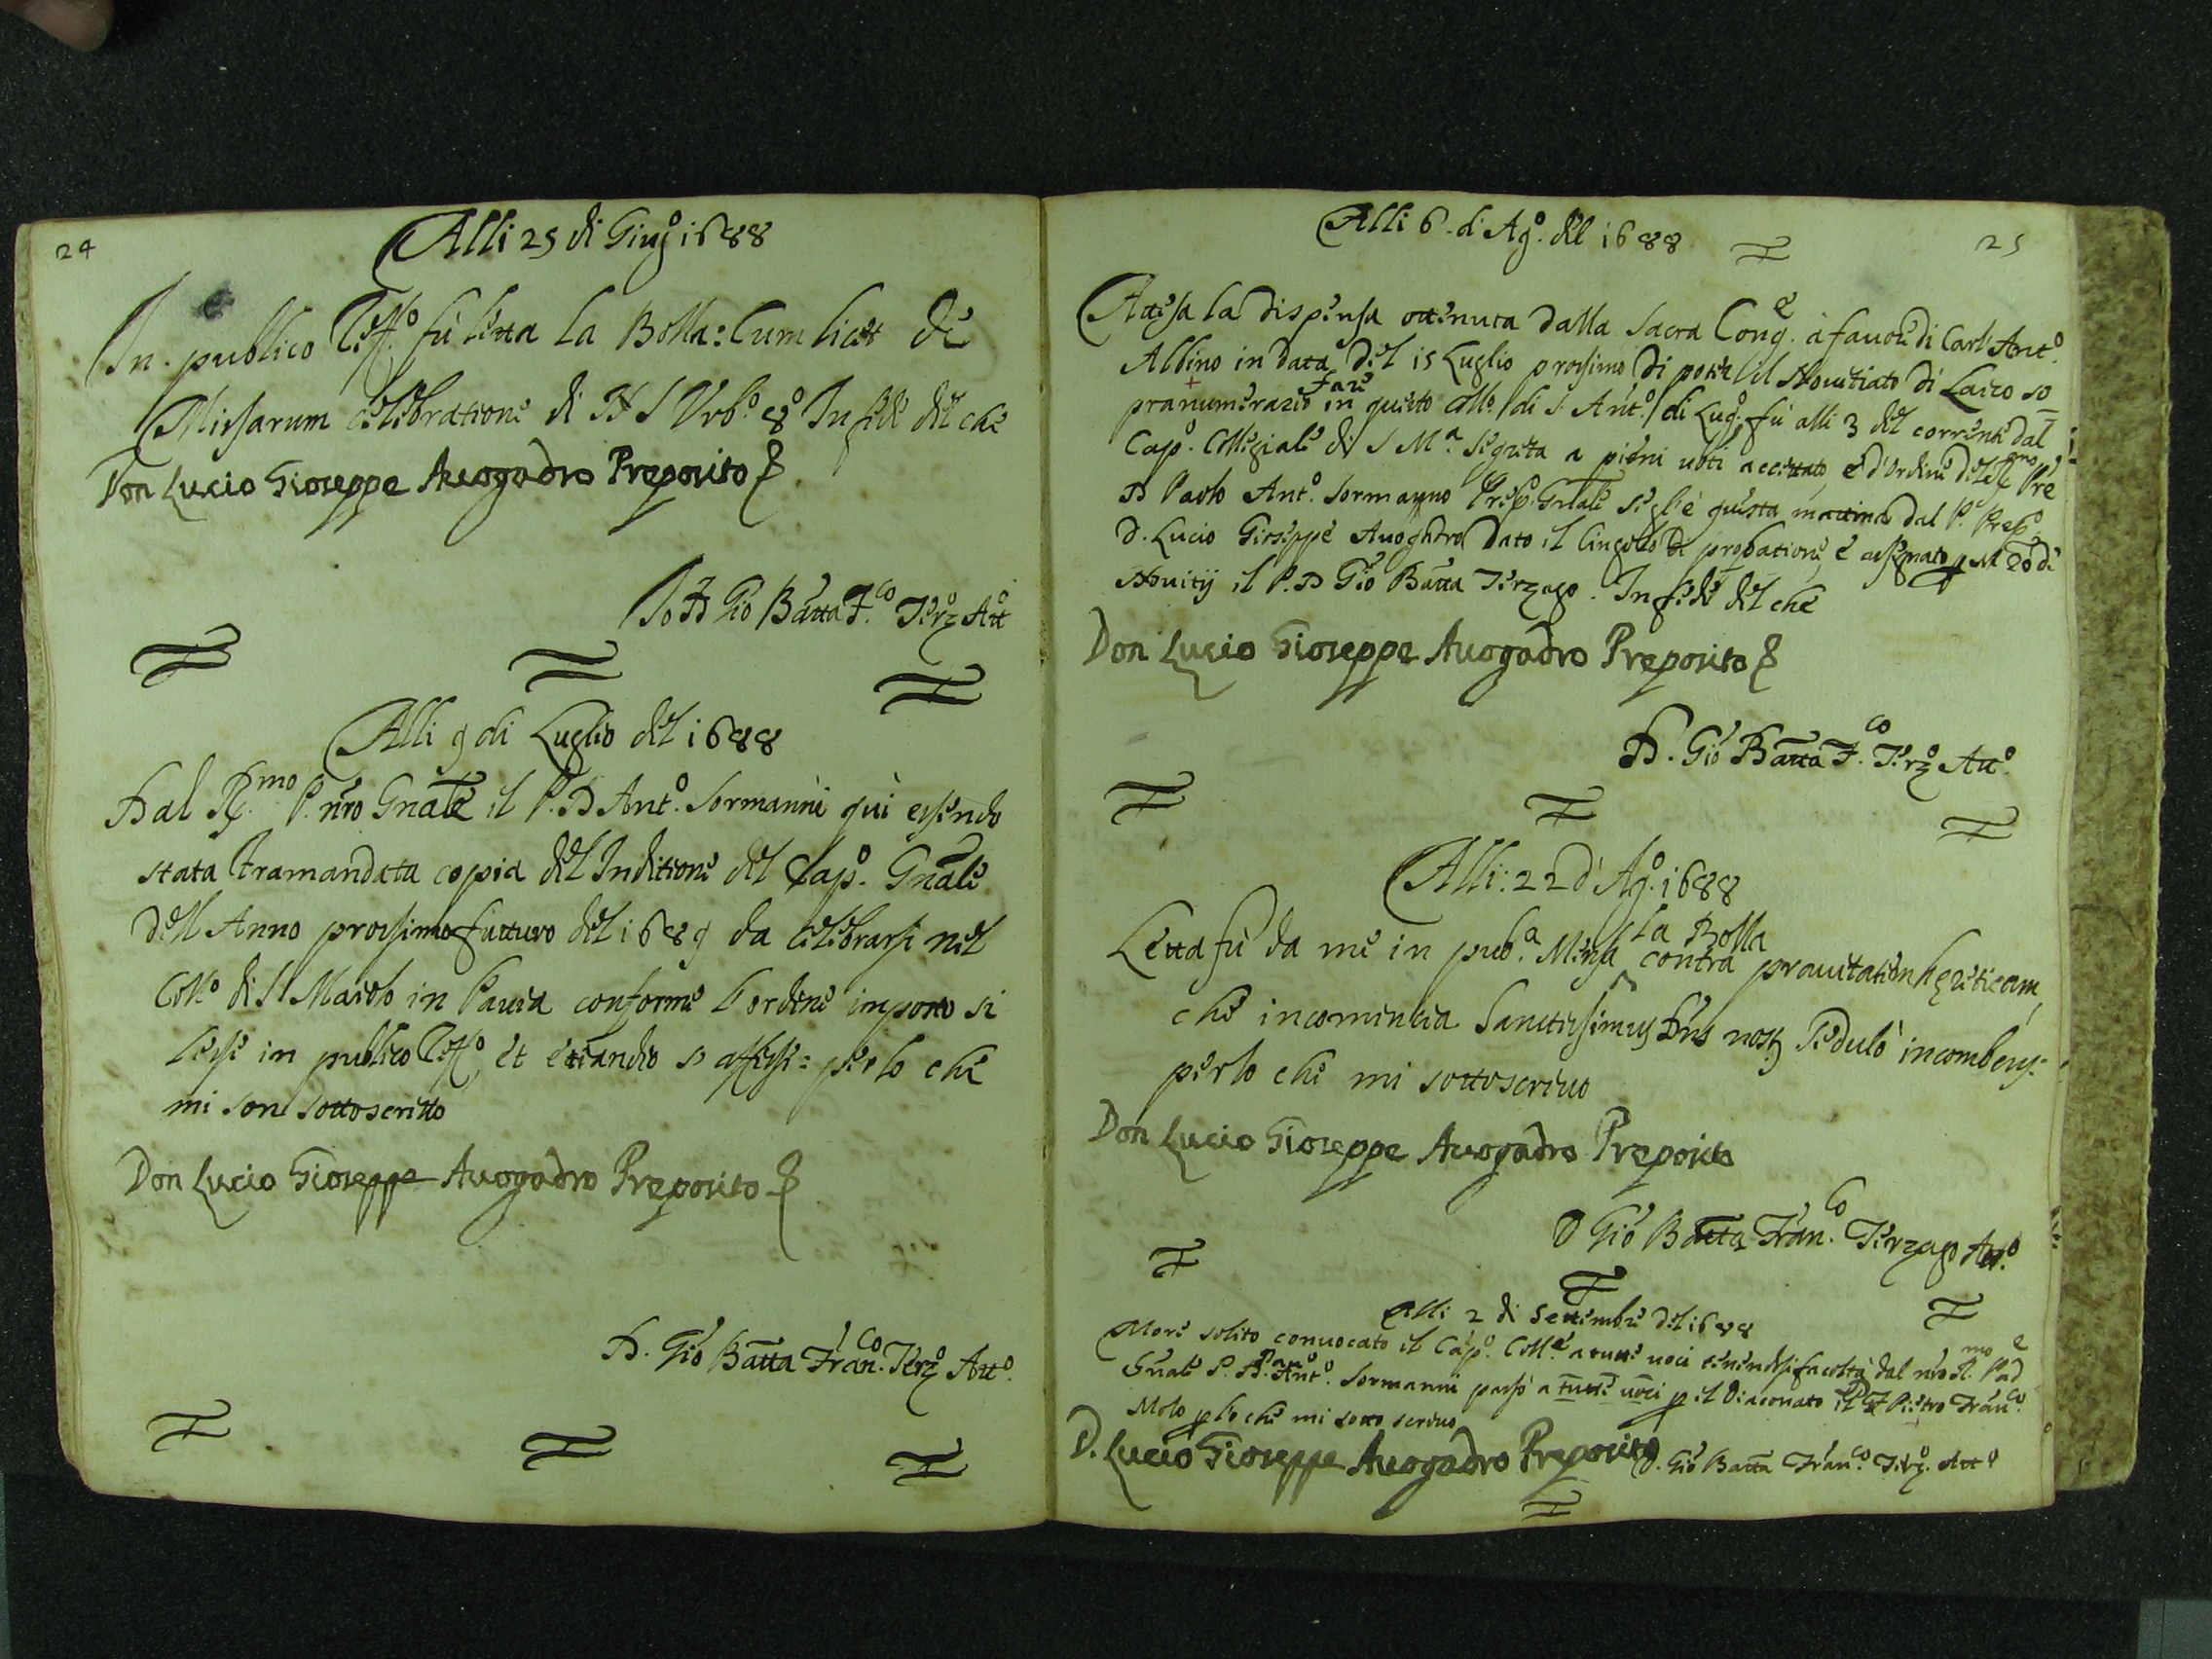 24
Alli 25 di Giug.o 1688
In publico Reff.o fù letta la Bolla: Cum licet de
Missarum celebratione di N S Vrb.o 8o In fede del che
Don Lucio Gioseppe Auogadro Preposito
Io D Gio Batta F.co Terz.o Att.o
Alli 9 di Luglio del 1688
Dal R.mo P. nro Gnale il P. D Ant.o Sormanni qui essendo
stata tramandata copia del Inditione del Cap.o Gnale
dell Anno prossimo futturo del 1689 da celebrarsi nel
Coll.o di S Maiolo in Pauia conforme l'ordine imposto si
lesse in publico Reff.o, et etiandio s'affisse: per lo che
mi son sottoscritto
Don Lucio Gioseppe Auogadro Preposito
D. Gio Batta Fran.co Terz.o Att.o
25
Alli 6. di Ag.o del 1688
Attesa la dispensa ottenuta dalla Sacra Cong.e à fauore di Carl' Ant.o
Albino in data del 15 Luglio prossimo di poter il Nouitiato di Laico so
pranumerario fare in questo Coll.o di S. Ant.o di Lug.o, fù alli 3 del corrente dal
Cap.o Collegiale di S M.a Segreta a pieni uoti accettato, e d'ordine del R.mo Pre
D Paolo Ant.o Sormanno Prep.o Gnale se gli è questa mattina dal P. Prep.o
D. Lucio Gioseppe Auogadro dato il Cingolo di probatione, e assegnato p M.ro di
Nouitij il P. D Gio Batta Terzago. In fede del che
Don Lucio Gioseppe Auogadro Preposito
D. Gio Batta F.co Terz.o Att.o
Alli: 22 d'Ag.o 1688
Letta fù da me in pub.a Mensa la Bolla contra prauitatem hereticam,
che incomincia Sanctissimus Dns nost Sedulò incombens:
perlo che mi sottoscriuo
Don Lucio Gioseppe Auogadro Preposito
D Gio Batta Fran.co Terzago Att.o
Alli 2 di Settembre del 1688
More solito conuocato il Cap.o Coll.e a tutte uoci tenendosi facoltà dal nro R.mo Pad.e
Gnale P. D. Pauo Ant.o Sormanni passò a tutte uoci p il Diaconato il P D Pietro Fran.co
Molo p lo che mi sotto scriuo
D. Lucio Gioseppe Auogadro Preposito
D. Gio Batta Fran.co Terz.o Att.o